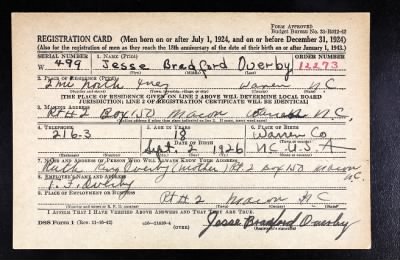 FORM APPROVED
Budget Bureau No. 33-R012-42
REGISTRATION CARD (Men born on or after July 1, 1924, and on or before December 31, 1924)
(Also for the registration of men as they reach the 18th anniversary of the date of their birth on or after January 1, 1943.)
SERIAL NUMBER 1. NAME (Print) ORDER NUMBER
499 Jesse Bradford Overby 12273
(First) (Middle) (Last)
2. PLACE OF RESIDENCE (Print)
2 mi North Inez Warren N.C.
[THE PLACE OF RESIDENCE GIVEN ON LINE 2 ABOVE WILL DETERMINE LOCAL BOARD
JURISDICTION; LINE 2 OF REGISTRATION CERTIFICATE WILL BE IDENTICAL]
3. MAILING ADDRESS
Rt # 2 Box 150 Macon N.C.
4. TELEPHONE 5. AGE IN YEARS 6. PLACE OF BIRTH
216-3 18 Warren Co
DATE OF BIRTH
Sept. 2 1926 N.C. U.S.A
7. NAME AND ADDRESS OF PERSON WHO WILL ALWAYS KNOW YOUR ADDRESS
Ruth King Overby (Mother) Rt 2 Box 150 Macon N.C.
8. EMPLOYER'S NAME AND ADDRESS
Overby
9. PLACE OF EMPLOYMENT OR BUSINESS
Rt # 2 Macon N C
I AFFIRM THAT I HAVE VERIFIED ABOVE ANSWERS AND THAT THEY ARE TRUE.
DSS Form 1 (Rev. 11-16-42) (OVER) Jesse Bradford Overby